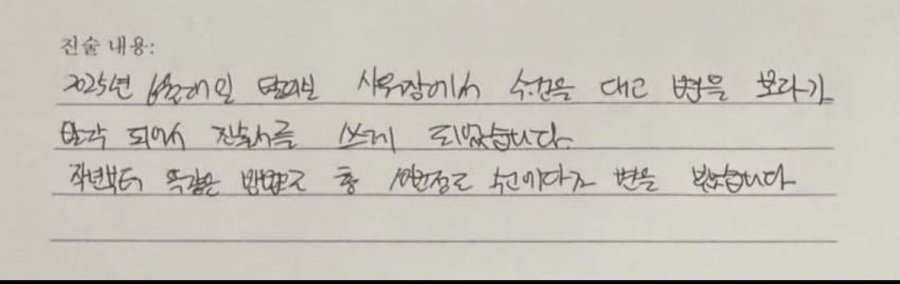 진술 내용:
2025년 6월 샤워장에서 수건을 대고 변을 보다가
발각 되어서 진술서를 쓰게 되었습니다.
작년부터 똑같은 방법으로 총 10번정도 수건에다가 변을 봤습니다